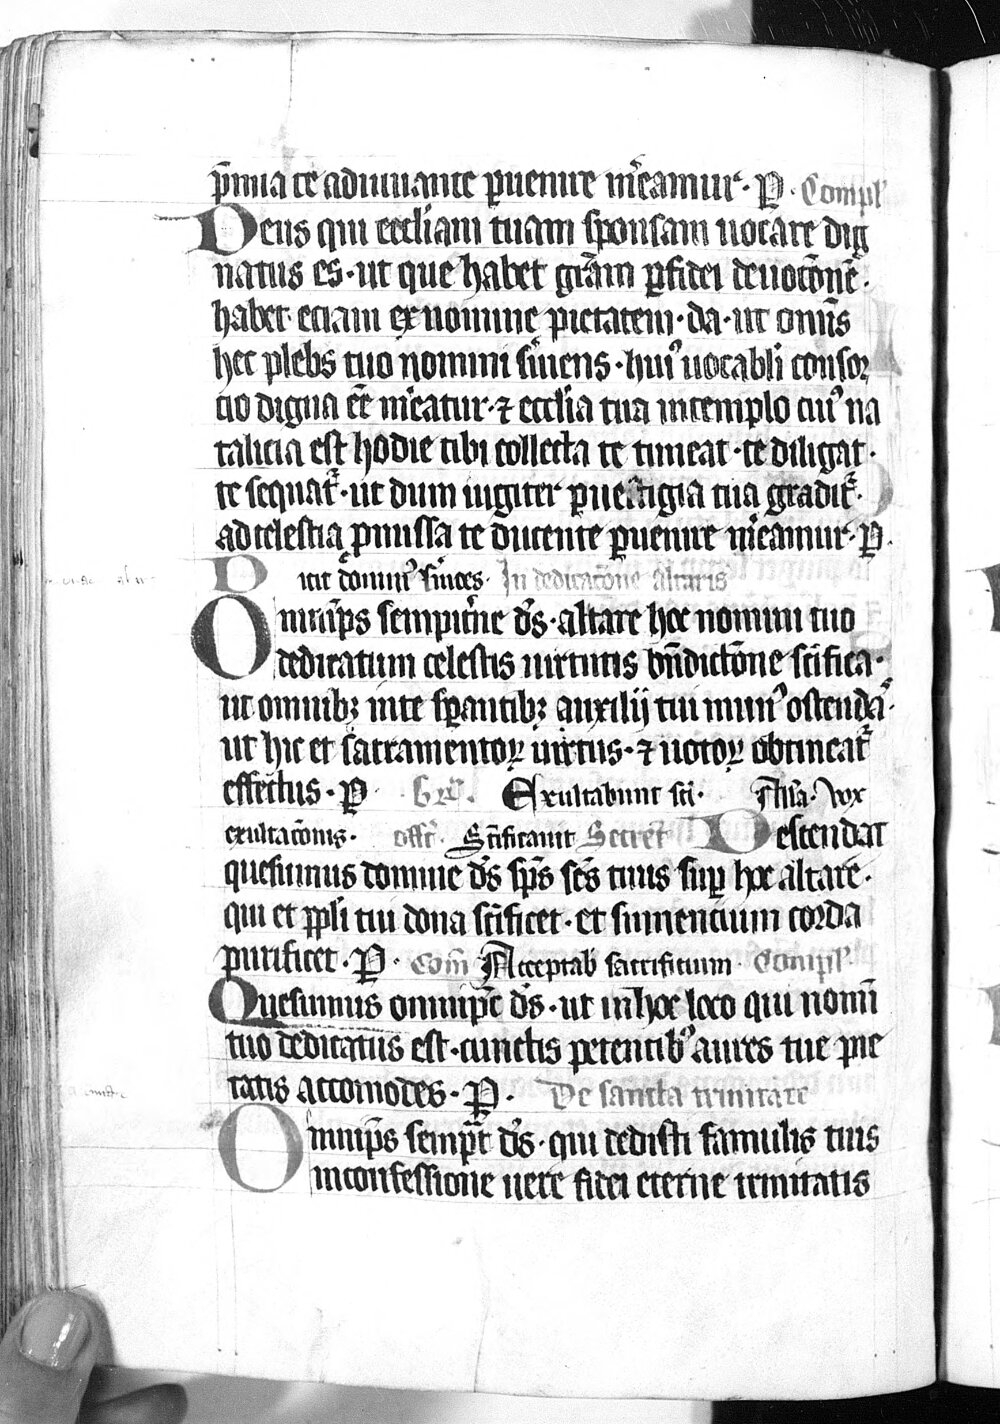 p̄mia te adiuuante ꝑuenire m̓eamur. P. Compl'
Deus qui eccl̓iam tuam sponsam uocare dig
natus es. ut que habet gr̄am ꝑ fidei deuoc̄onē.
habet eciam ex nomine pietatem. da. ut om̄is
hec plebs tuo nomini s̓uiens. hui᾽ uocabl̓i consor
cio digna eē m̓eatur. ⁊ eccl̓ia tua in templo cui᾽ na
talicia est hodie tibi collecta te timeat. te diligat.
te sequat᷑. ut dum iugiter ꝑ uestigia tua gradit᷑.
ad celestia ꝓmissa te ducente ꝑuenire m̓eamur. P.
Dicit dominꝰ In dedicac̄one altaris
Omnip̄s sempit̓ne ds̄. altare hoc nomini tuo
dedicatum celestis uirtutis bn̄dictōne sc̄ifica.
ut omnibꝫ in te sꝑantibꝫ auxilij tui munꝰ ostendat᷑.
ut hic et sacramentoꝝ uirtus. ⁊ uotoꝝ obtineat᷑
effectus. P. Gr̄. Exultabunt sc̄i. All'a. Vox
exultac̄onis. off̄r. Sc̄ificauit Secret' Descendat
quesumus domine ds̄ sp̄s sc̄s tuus suꝑ hoc altare.
qui et pp̄li tui dona sc̄ificet. et sumencium corda
purificet. P. Com̄ Acceptab̓ sacrificium. Compl'.
Quesumus omnip̄c ds̄. ut in hoc loco qui nomī
tuo dedicatus est. cunctis petentibꝰ aures tue pie
tatis accomodes. P. De sancta trinitate
Omnip̄s semp̄t ds̄. qui dedisti famulis tuis
in confessione uere fidei eterne trinitatis